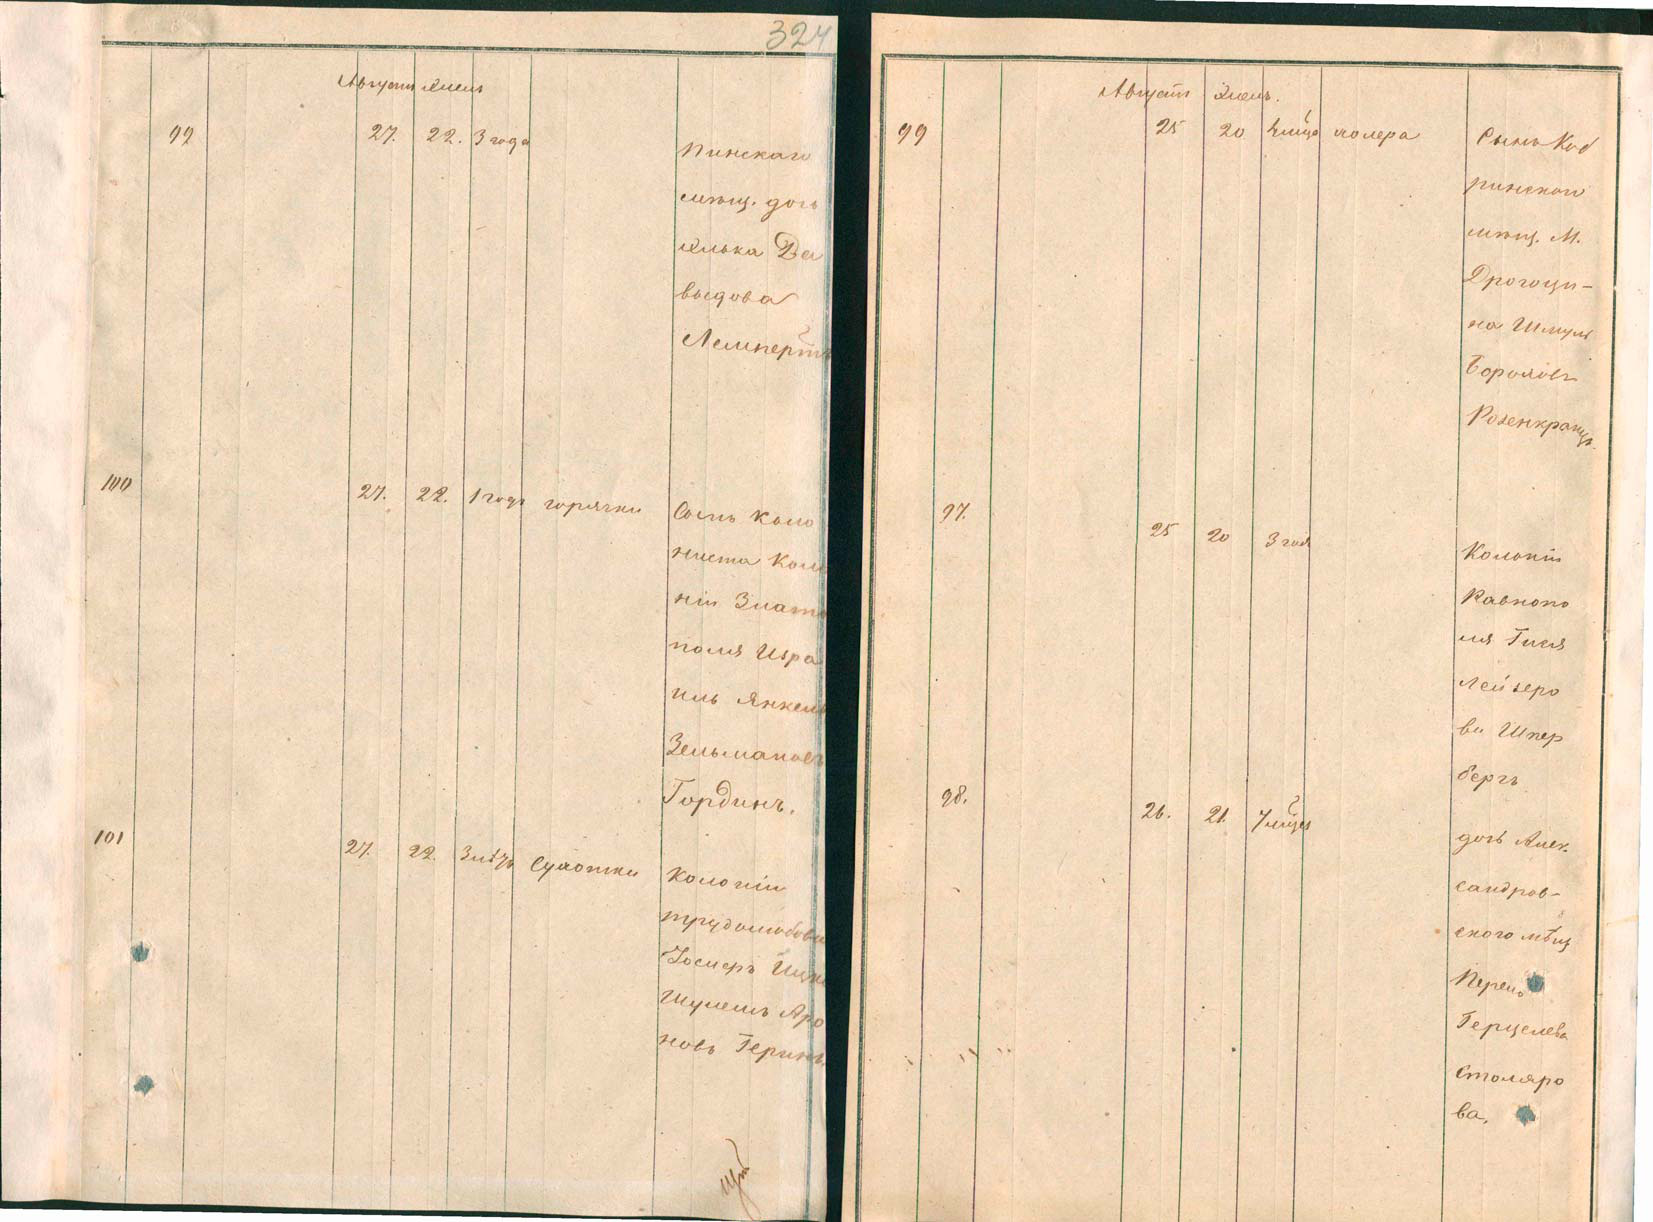 324
Августъ Элель
99 27. 22. 3 года
Пинскаго
мѣщ. дочь
Элька Да
выдова
Лемпертъ
100 27. 22. 1 годъ горячки
Сынъ коло
ниста Коло
ніи Злато
поля Изра
иль Янкель
Зельмановъ
Гординъ.
101 27. 22. 3 мѣсц. Сухотки
Колоніи
трудолюбовки
Іосперъ Ицко
Шулемъ Аро
новъ Геринъ.
Августъ Элелъ.
99 25 20 холера
Сынъ Коб
ринскаго
мѣщ. М.
Дрогочи-
на Шмуль
Боруховъ
Розенкранцъ
97. 25 20 3 года
Колоніи
Равнопо
ля Гися
Лейзеро
ва Шпер
бергъ
98. 26. 21.
дочь Алек-
сандров-
скаго мѣщ
Перель
Герцелева
Столяро
ва.